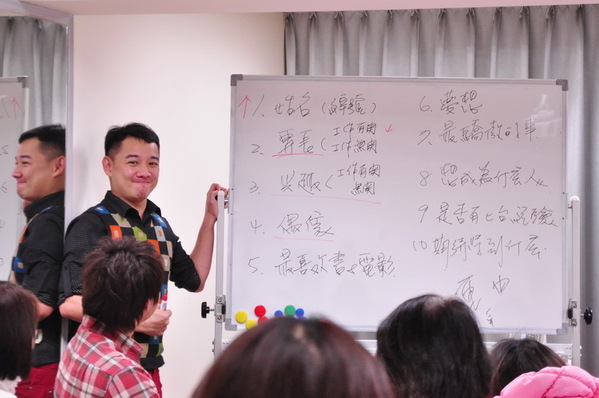 1. 姓名(綽號)
2. 專長(工作有關
工作無關
3. 興趣(工作有關
無關
4. 偶像
5. 最喜欢書&電影
6. 夢想
7. 最驕傲的事
8 想成為什広人
9 是否有上台經驗
10 期待学到什広